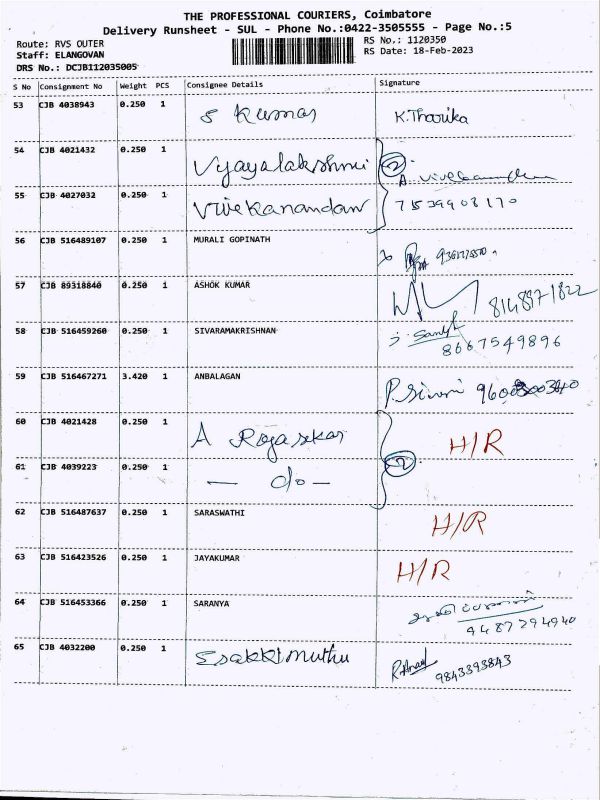 THE PROFESSIONAL COURIERS, Coimbatore
Delivery Runsheet - SUL - Phone No.:0422-3505555 - Page No.:5
Route: RVS OUTER
RS No.: 1120350
Staff: ELANGOVAN
RS Date: 18-Feb-2023
DRS No.: DCJB112035005
S No Consignment No Weight PCS Consignee Details Signature
53 CJB 4038943 0.250 1 S Kumar K.Tharika
54 CJB 4021432 0.250 1 Vijayalakshmi 2
55 CJB 4027032 0.250 1 Vivekanandan 7539908170
56 CJB 516489107 0.250 1 MURALI GOPINATH
57 CJB 89318840 0.250 1 ASHOK KUMAR 8148971822
58 CJB 516459260 0.250 1 SIVARAMAKRISHNAN 8667549896
59 CJB 516467271 3.420 1 ANBALAGAN
60 CJB 4021428 0.250 1 A Rajasekar H/R
61 CJB 4039223 0.250 1 — do — 2
62 CJB 516487637 0.250 1 SARASWATHI H/R
63 CJB 516423526 0.250 1 JAYAKUMAR H/R
64 CJB 516453366 0.250 1 SARANYA 9487294940
65 CJB 4032200 0.250 1 Esakkimuthu 9843393843